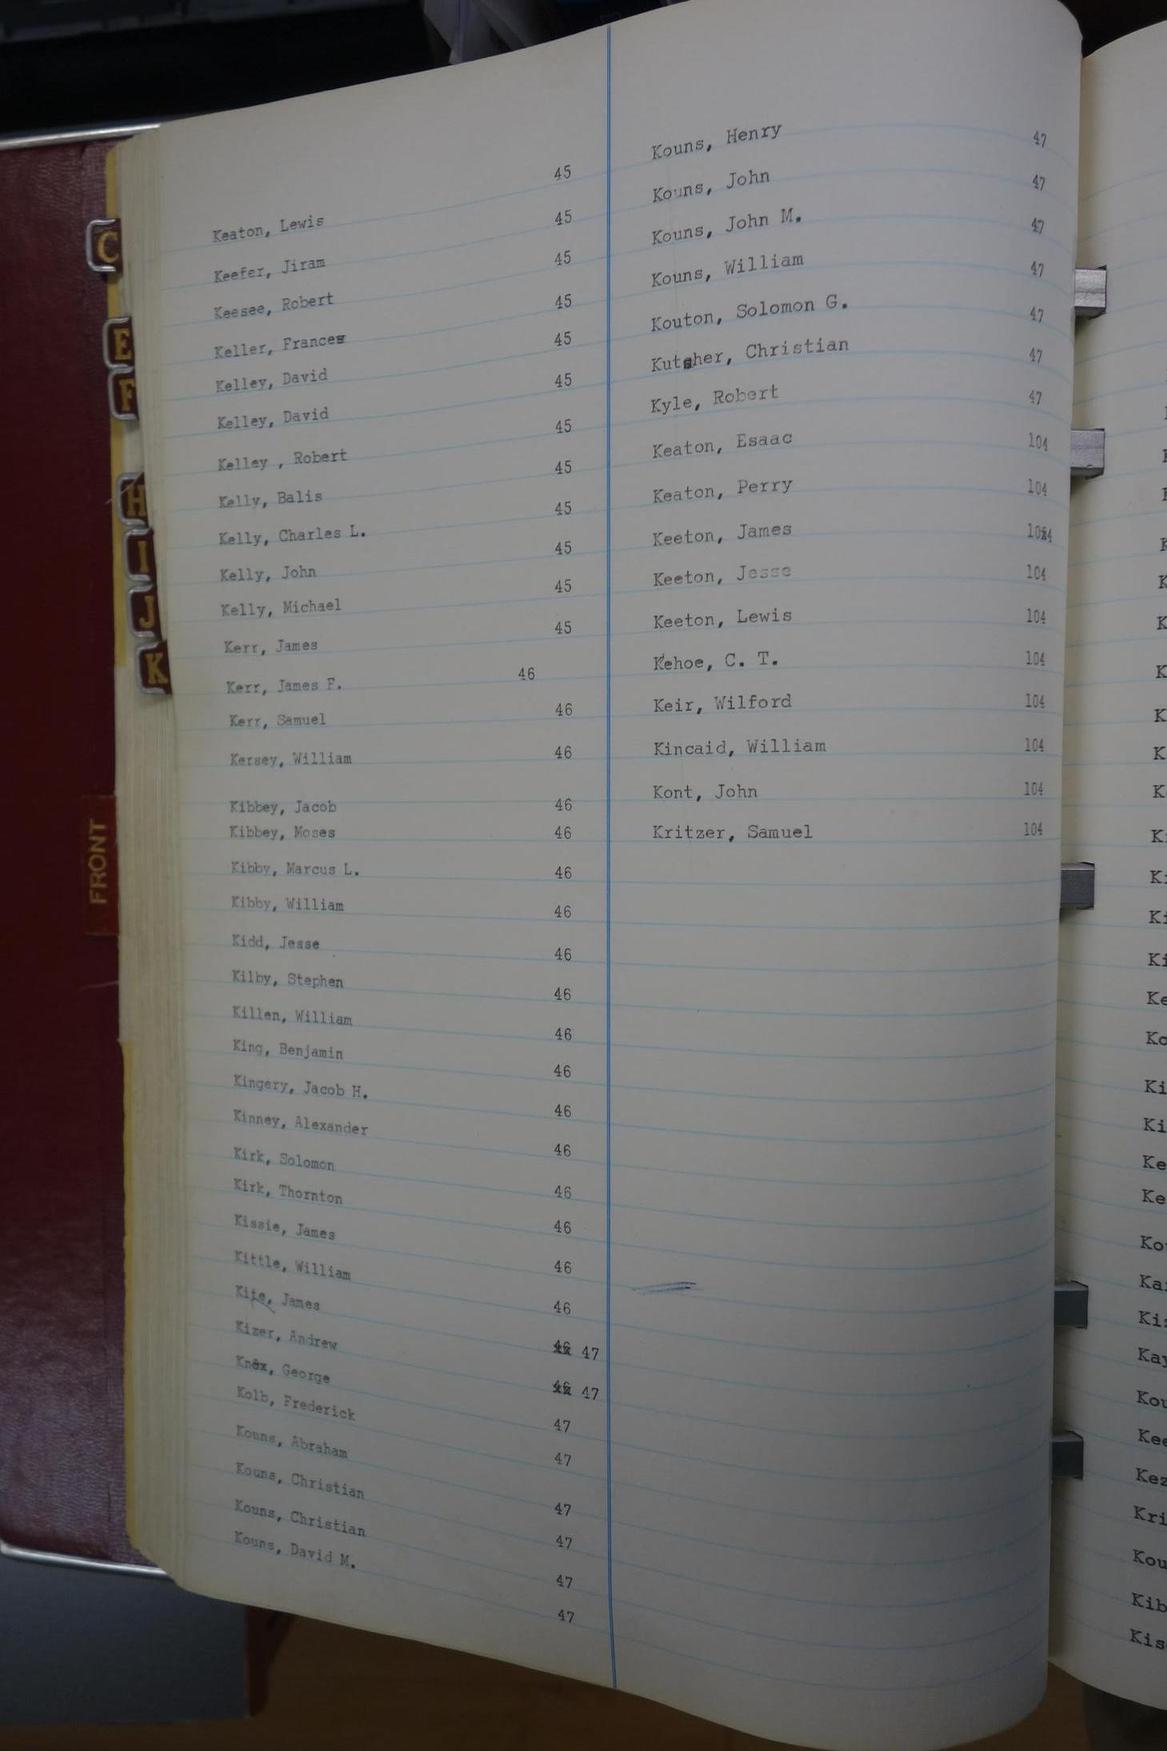 Keaton, Lewis 45
Keefer, Jiram 45
Keesee, Robert 45
Keller, Frances 45
Kelley, David 45
Kelley, David 45
Kelley , Robert 45
Kelly, Balis 45
Kelly, Charles L. 45
Kelly, John 45
Kelly, Michael 45
Kerr, James 45
Kerr, James F. 46
Kerr, Samuel 46
Kersey, William 46
Kibbey, Jacob 46
Kibbey, Moses 46
Kibby, Marcus L. 46
Kibby, William 46
Kidd, Jesse 46
Kilby, Stephen 46
Killen, William 46
King, Benjamin 46
Kingery, Jacob H. 46
Kinney, Alexander 46
Kirk, Solomon 46
Kirk, Thornton 46
Kissie, James 46
Kittle, William 46
Kite, James 46 47
Kizer, Andrew 46 47
Knox, George 47
Kolb, Frederick 47
Kouns, Abraham 47
Kouns, Christian 47
Kouns, Christian 47
Kouns, David M. 47
Kouns, Henry 47
Kouns, John 47
Kouns, John M. 47
Kouns, William 47
Kouton, Solomon G. 47
Kutcher, Christian 47
Kyle, Robert 47
Keaton, Esaac 104
Keaton, Perry 104
Keeton, James 104
Keeton, Jesse 104
Keeton, Lewis 104
Kehoe, C. T. 104
Keir, Wilford 104
Kincaid, William 104
Kont, John 104
Kritzer, Samuel 104
C
E
F
H
I
J
K
FRONT